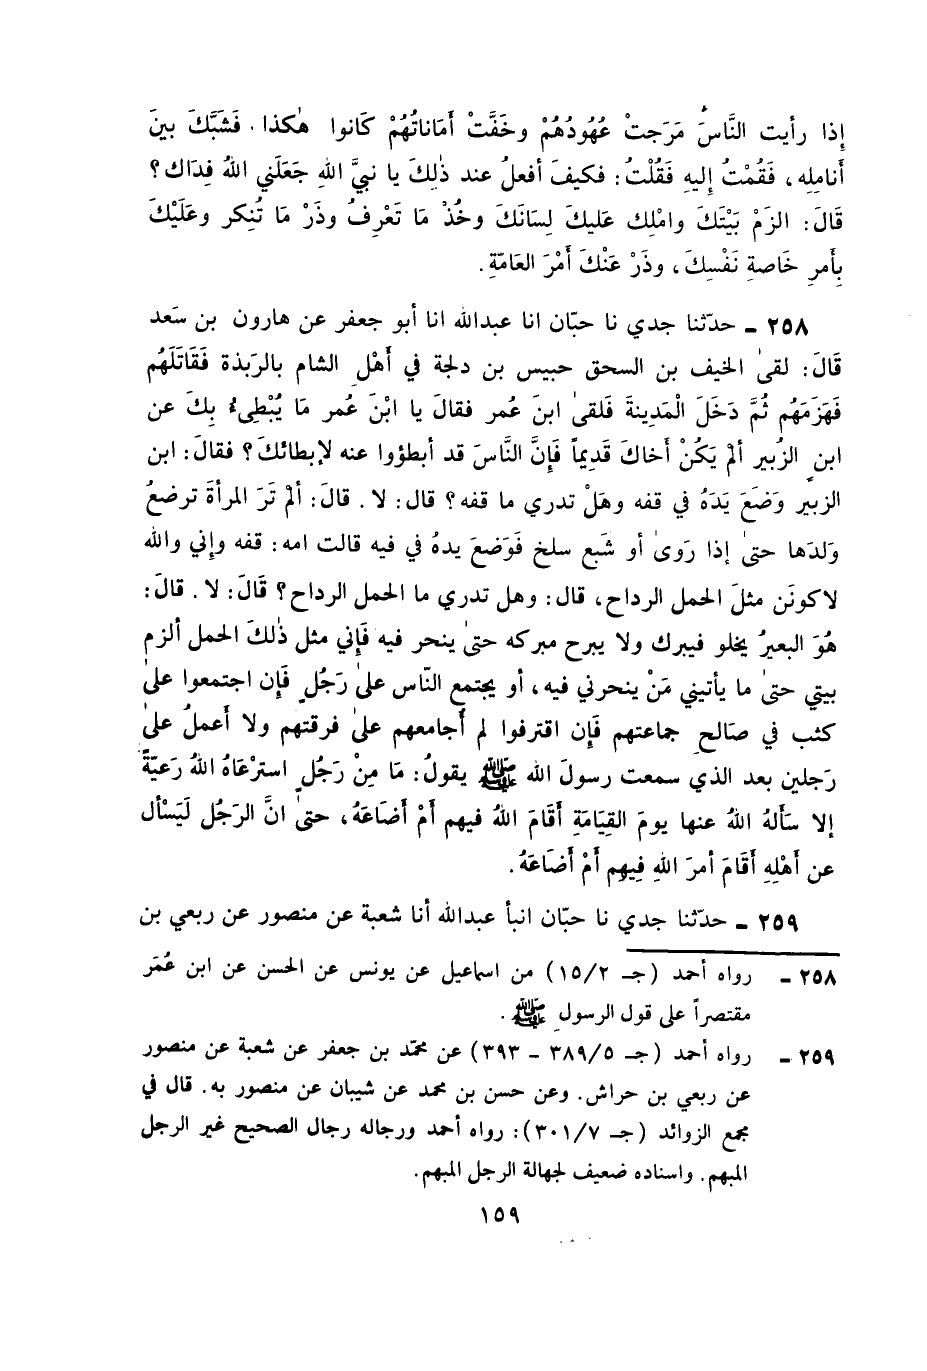 إذا رأيت النَّاسَ مَرَجتْ عُهُودُهُمْ وخَفَّتْ أمَاناتُهُمْ كَانوا هٰكذا . فَشَبَّكَ بينَ
أنامِلِه ، فَقُمْتُ إليهِ فَقُلْتُ : فكيفَ أفعلُ عند ذٰلِكَ يا نبيَّ اللهِ جَعَلَني اللهُ فِدَاك ؟
قَالَ : الزَمْ بَيْتَكَ واملِك عَليكَ لِسَانَكَ وخُذْ مَا تَعْرِفُ وذَرْ مَا تُنِكر وعَلَيْكَ
بِأمرِ خَاصةِ نَفْسِكَ ، وذَرْ عَنْكَ أمْرَ العَامّةِ .
٢٥٨ ـ حدّثنا جدي نا حبّان انا عبدالله انا أبو جعفر عن هارون بن سَعد
قَالَ : لقىٰ الخيف بن السحق حبيس بن دلجة في أهْلِ الشام بالرَبذة فَقَاتَلَهُم
فَهَزَمَهُم ثُمَّ دَخَلَ الْمَدِينةَ فَلقىٰ ابنَ عُمر فقالَ يا ابْنَ عُمر مَا يُبْطِىءُ بِكَ عن
ابنِ الزُبير ألمْ يَكُنْ أخاكَ قَدِيماً فَإنَّ النَّاسَ قد أبطؤوا عنه لإبطائكَ ؟ فقالَ : ابن
الزبير وَضَعَ يَدَهُ في قفه وهَلْ تدري ما قفه ؟ قال : لا . قالَ : ألمْ تَرَ المرأةَ ترضعُ
وَلدَها حتىٰ إذا رَوىٰ أو شَبع سلخ فَوَضعَ يدهُ في فيه قالت امه : قفه وإني والله
لاكونَن مثلَ الحمل الرداح ، قال : وهل تدري ما الحمل الرداح ؟ قَالَ : لا . قالَ :
هُوَ البعيرُ يخلو فيبرك ولا يبرح مبركه حتىٰ ينحر فيه فَإني مثل ذٰلكَ الحمل ألزم
بيتي حتىٰ ما يأتيني مَنْ ينحرني فيه ، أو يجتمع النّاس علىٰ رَجُلٍ فَإن اجتمعوا علىٰ
كثب في صَالحِ جماعتهم فَإن اقترفوا لم أجامعهم علىٰ فرقتهم ولا أعملُ علىٰ
رَجلين بعد الذي سمعت رسولَ الله ﷺ يقولُ : مَا مِنْ رَجُلٍ استرْعَاهُ اللهُ رَعيّةً
إلا سَألهُ اللهُ عنها يومَ القِيَامَةِ أقَامَ اللهُ فيهم أمْ أضَاعَهُ ، حتىٰ انَّ الرَجُل لَيَسْأل
عن أهْلِهِ أقَامَ أمرَ اللهِ فِيهِم أمْ أضَاعَهُ .
٢٥٩ ـ حدّثنا جدي نا حبّان انبأ عبدالله أنا شعبة عن منصور عن ربعي بن
٢٥٨ ـ رواه أحمد ( جـ ١٥/٢ ) من اسماعيل عن يونس عن الحسن عن ابن عُمَر
مقتصراً على قول الرسولِ ﷺ .
٢٥٩ ـ رواه أحمد ( جـ ٣٨٩/٥ - ٣٩٣ ) عن محمّد بن جعفر عن شعبة عن منصور
عن ربعي بن حراش . وعن حسن بن محمد عن شيبان عن منصور به . قال في
مجمع الزوائد ( جـ ٣٠١/٧ ) : رواه أحمد ورجاله رجال الصحيح غير الرجل
المبهم . واسناده ضعيف لجهالة الرجل المبهم .
١٥٩